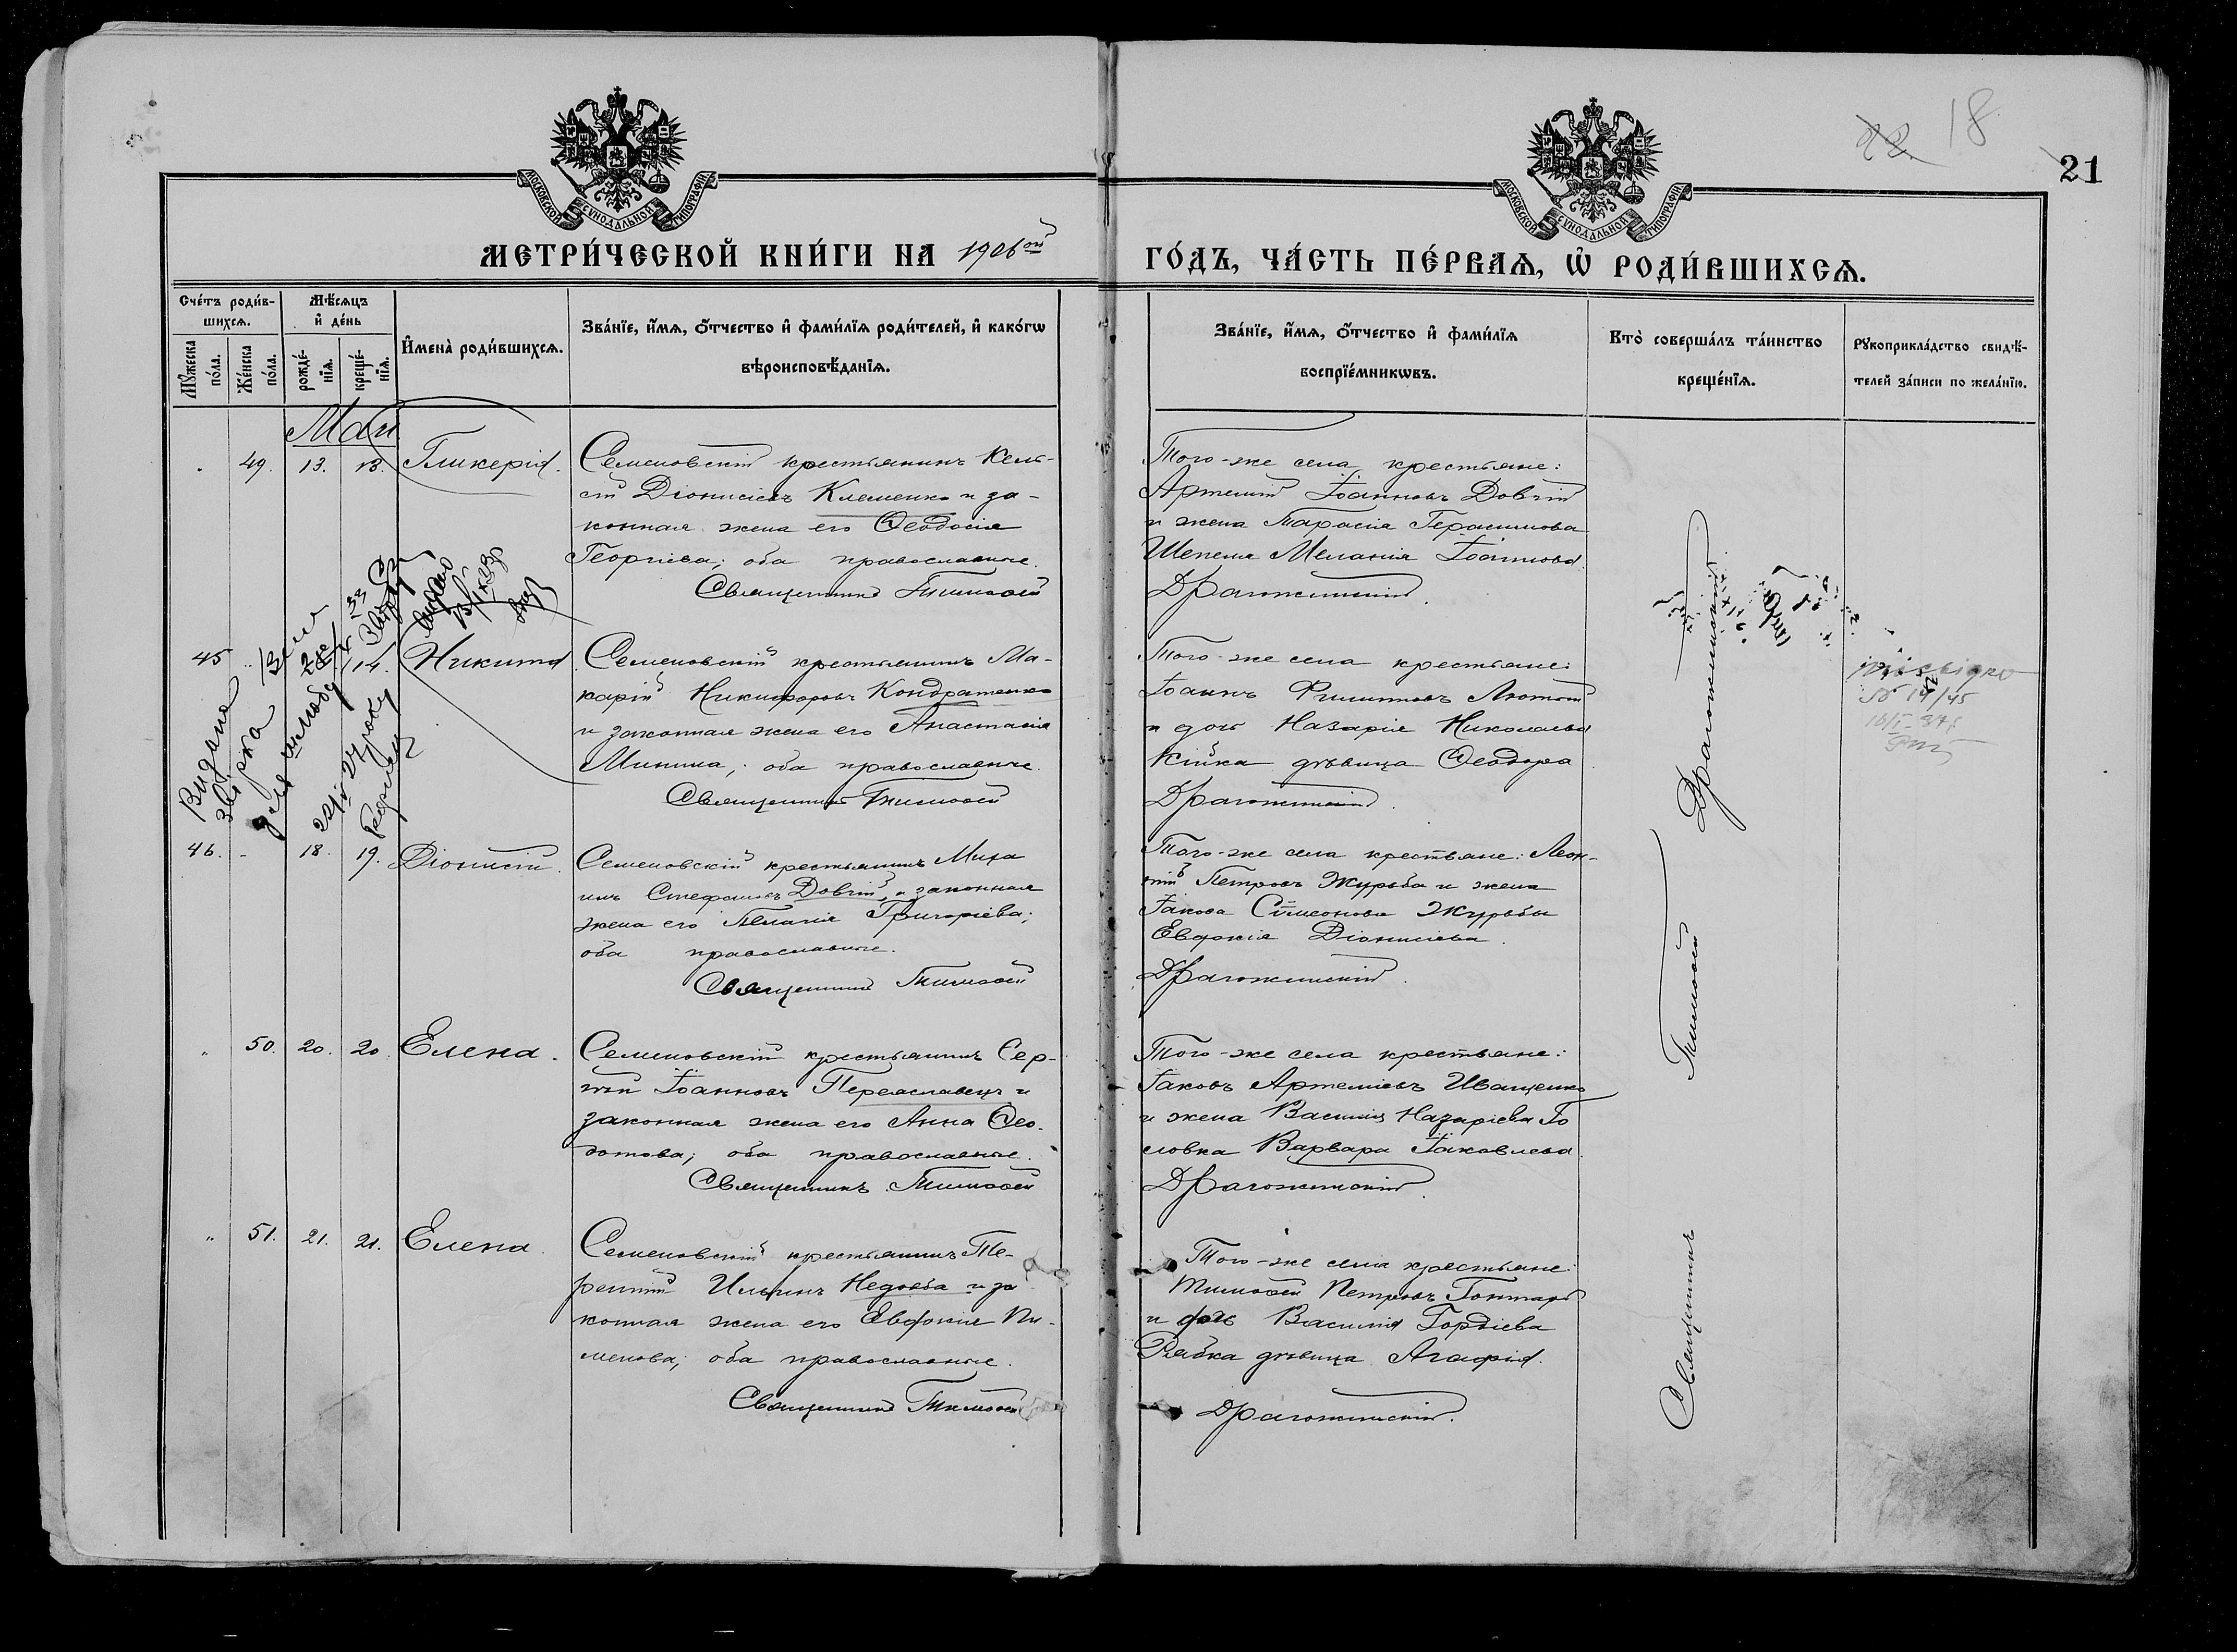 18
21
МОСКОВСКОЙ СѴНОДАЛЬНОЙ ТИПОГРАФІИ
МОСКОВСКОЙ СѴНОДАЛЬНОЙ ТИПОГРАФІИ
МЕТРИ́ЧЕСКОЙ КНИ́ГИ НА 1906 ой
ГО́ДЪ, ЧА́СТЬ ПЕ́РВАѦ, Ѡ҆ РОДИ́ВШИХСѦ.
Сче́тъ роди́в-
шихсѧ.
Мꙋ́жеска по́ла.
Же́нска по́ла.
Мѣ́сѧцъ
и҆ де́нь
рожде́-
нїѧ.
креще́-
нїѧ.
И҆мена̀ роди́вшихсѧ.
Зва́нїе, и҆́мѧ, ѻ҆́тчество и҆ фами́лїѧ роди́телей, и҆ како́гѡ
вѣроисповѣ́данїѧ.
Зва́нїе, и҆́мѧ, ѻ҆́тчество и҆ фами́лїѧ
воспрїе́мникѡвъ.
Кто̀ соверша́лъ та́инство
креще́нїѧ.
Рꙋкоприкла́дство свидѣ́-
телей за́писи по жела́нїю.
Май
49. 13. 13. Гликерія.
Семеновскій крестьянинъ Кель-
сій Діонисіевъ Клеменко и за-
конная жена его Ѳеодосія
Георгіева; оба православные.
Священникъ Тимоѳей
Того-же села крестьяне:
Артемій Іоанновъ Довгій
и жена Тарасія Герасимова
Шепеля Меланія Іоаннова.
Драгожинскій.
45 14. Никита
Семеновскій крестьянинъ Ма-
карій Никифоровъ Кондратенко
и законная жена его Анастасія
Минина; оба православные.
Священникъ Тимоѳей
Того-же села крестьяне:
Іоаннъ Филипповъ Лютый
и дочь Назарія Николаева
Кійка дѣвица Ѳеодора
Драгожинскій.
Видана
звірка
для шлюбу
46. - 18. 19. Діонисій.
Семеновскій крестьянинъ Миха
илъ Стефановъ Довгій и законная
жена его Пелагія Григоріева;
оба православные.
Священникъ Тимоѳей
Того-же села крестьяне: Леон-
тій Петровъ Журьба и жена
Іакова Сѵмеонова Журьбы
Евдокія Діонисіева.
Драгожинскій.
„ 50. 20. 20. Елена.
Семеновскій крестьянинъ Сер-
гій Іоанновъ Переяславецъ и
законная жена его Анна Ѳео-
дотова; оба православные.
Священникъ Тимоѳей
Того-же села крестьяне:
Іаковъ Артеміевъ Иващенко
и жена Василія Назаріева Го
ловка Варвара Іаковлева.
Драгожинскій.
„ 51. 21. 21. Елена
Семеновскій крестьянинъ Те-
рентій Ильинъ Недоеба и за
конная жена его Евдокія Пи-
менова; оба православные.
Священникъ Тимоѳей
Того-же села крестьяне:
Тимоѳей Петровъ Гонтарь
и дочь Василія Гордіева
Рябка дѣвица Агафія.
Драгожинскій.
Священникъ Тимоѳей Драгожинскій